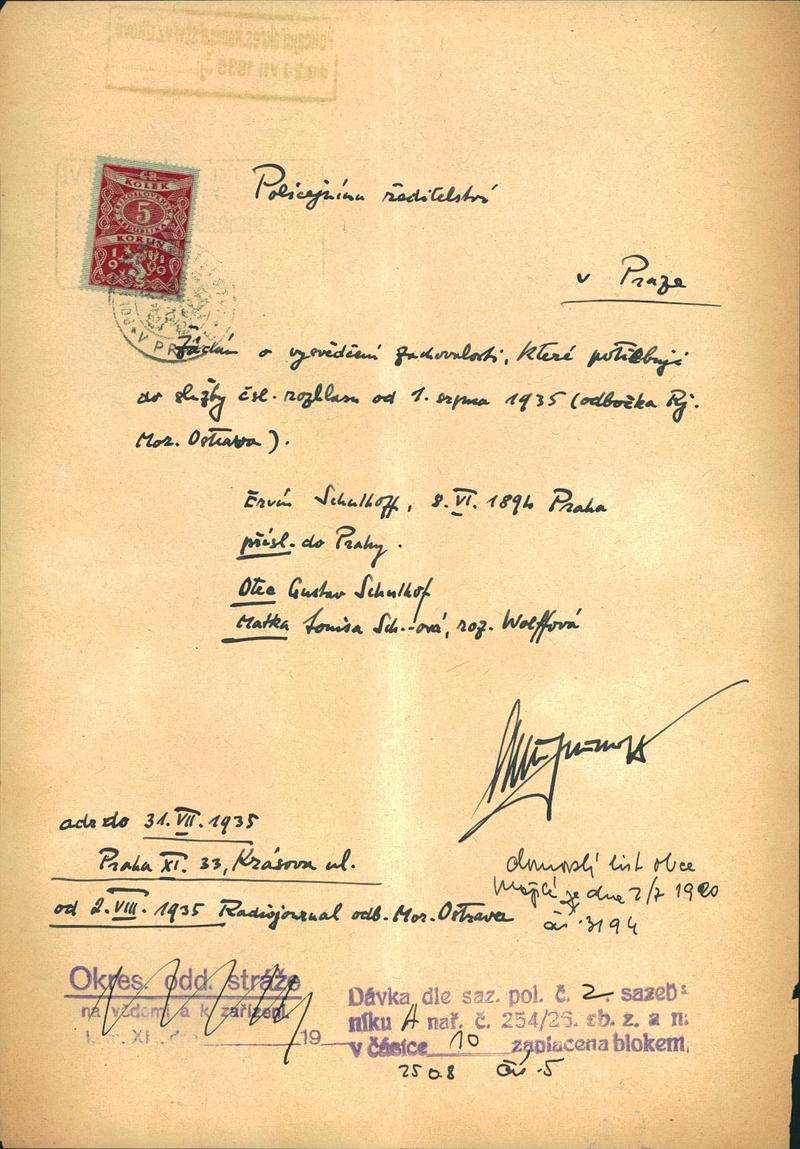 KOLEK
5
KORUN
1919
V PR
Policejnímu ředitelství
v Praze
Žádám o vysvědčení zachovalosti, které potřebuji
do služby čsl. rozhlasu od 1. srpna 1935 (odbočka Rj.
Mor. Ostrava).
Ervín Schulhoff, 8. VI. 1894 Praha
přísl. do Prahy.
Otec Gustav Schulhof
Matka Louisa Sch--ová, roz. Wolffová
adr do 31. VII. 1935
Praha XI. 33, Krásova ul.
od 2. VIII. 1935 Radiojournal odb. Mor. Ostrava
domovský list obce
dne 2/7 1920
čís. 3194
Okres. odd. stráže
na vědomí a k zařízení.
XI., dne 19
Dávka dle saz. pol. č. 2. sazeb-
níku A nař. č. 254/26. sb. z. a n.
v částce 10 zaplacena blokem,
2508 čís. 5